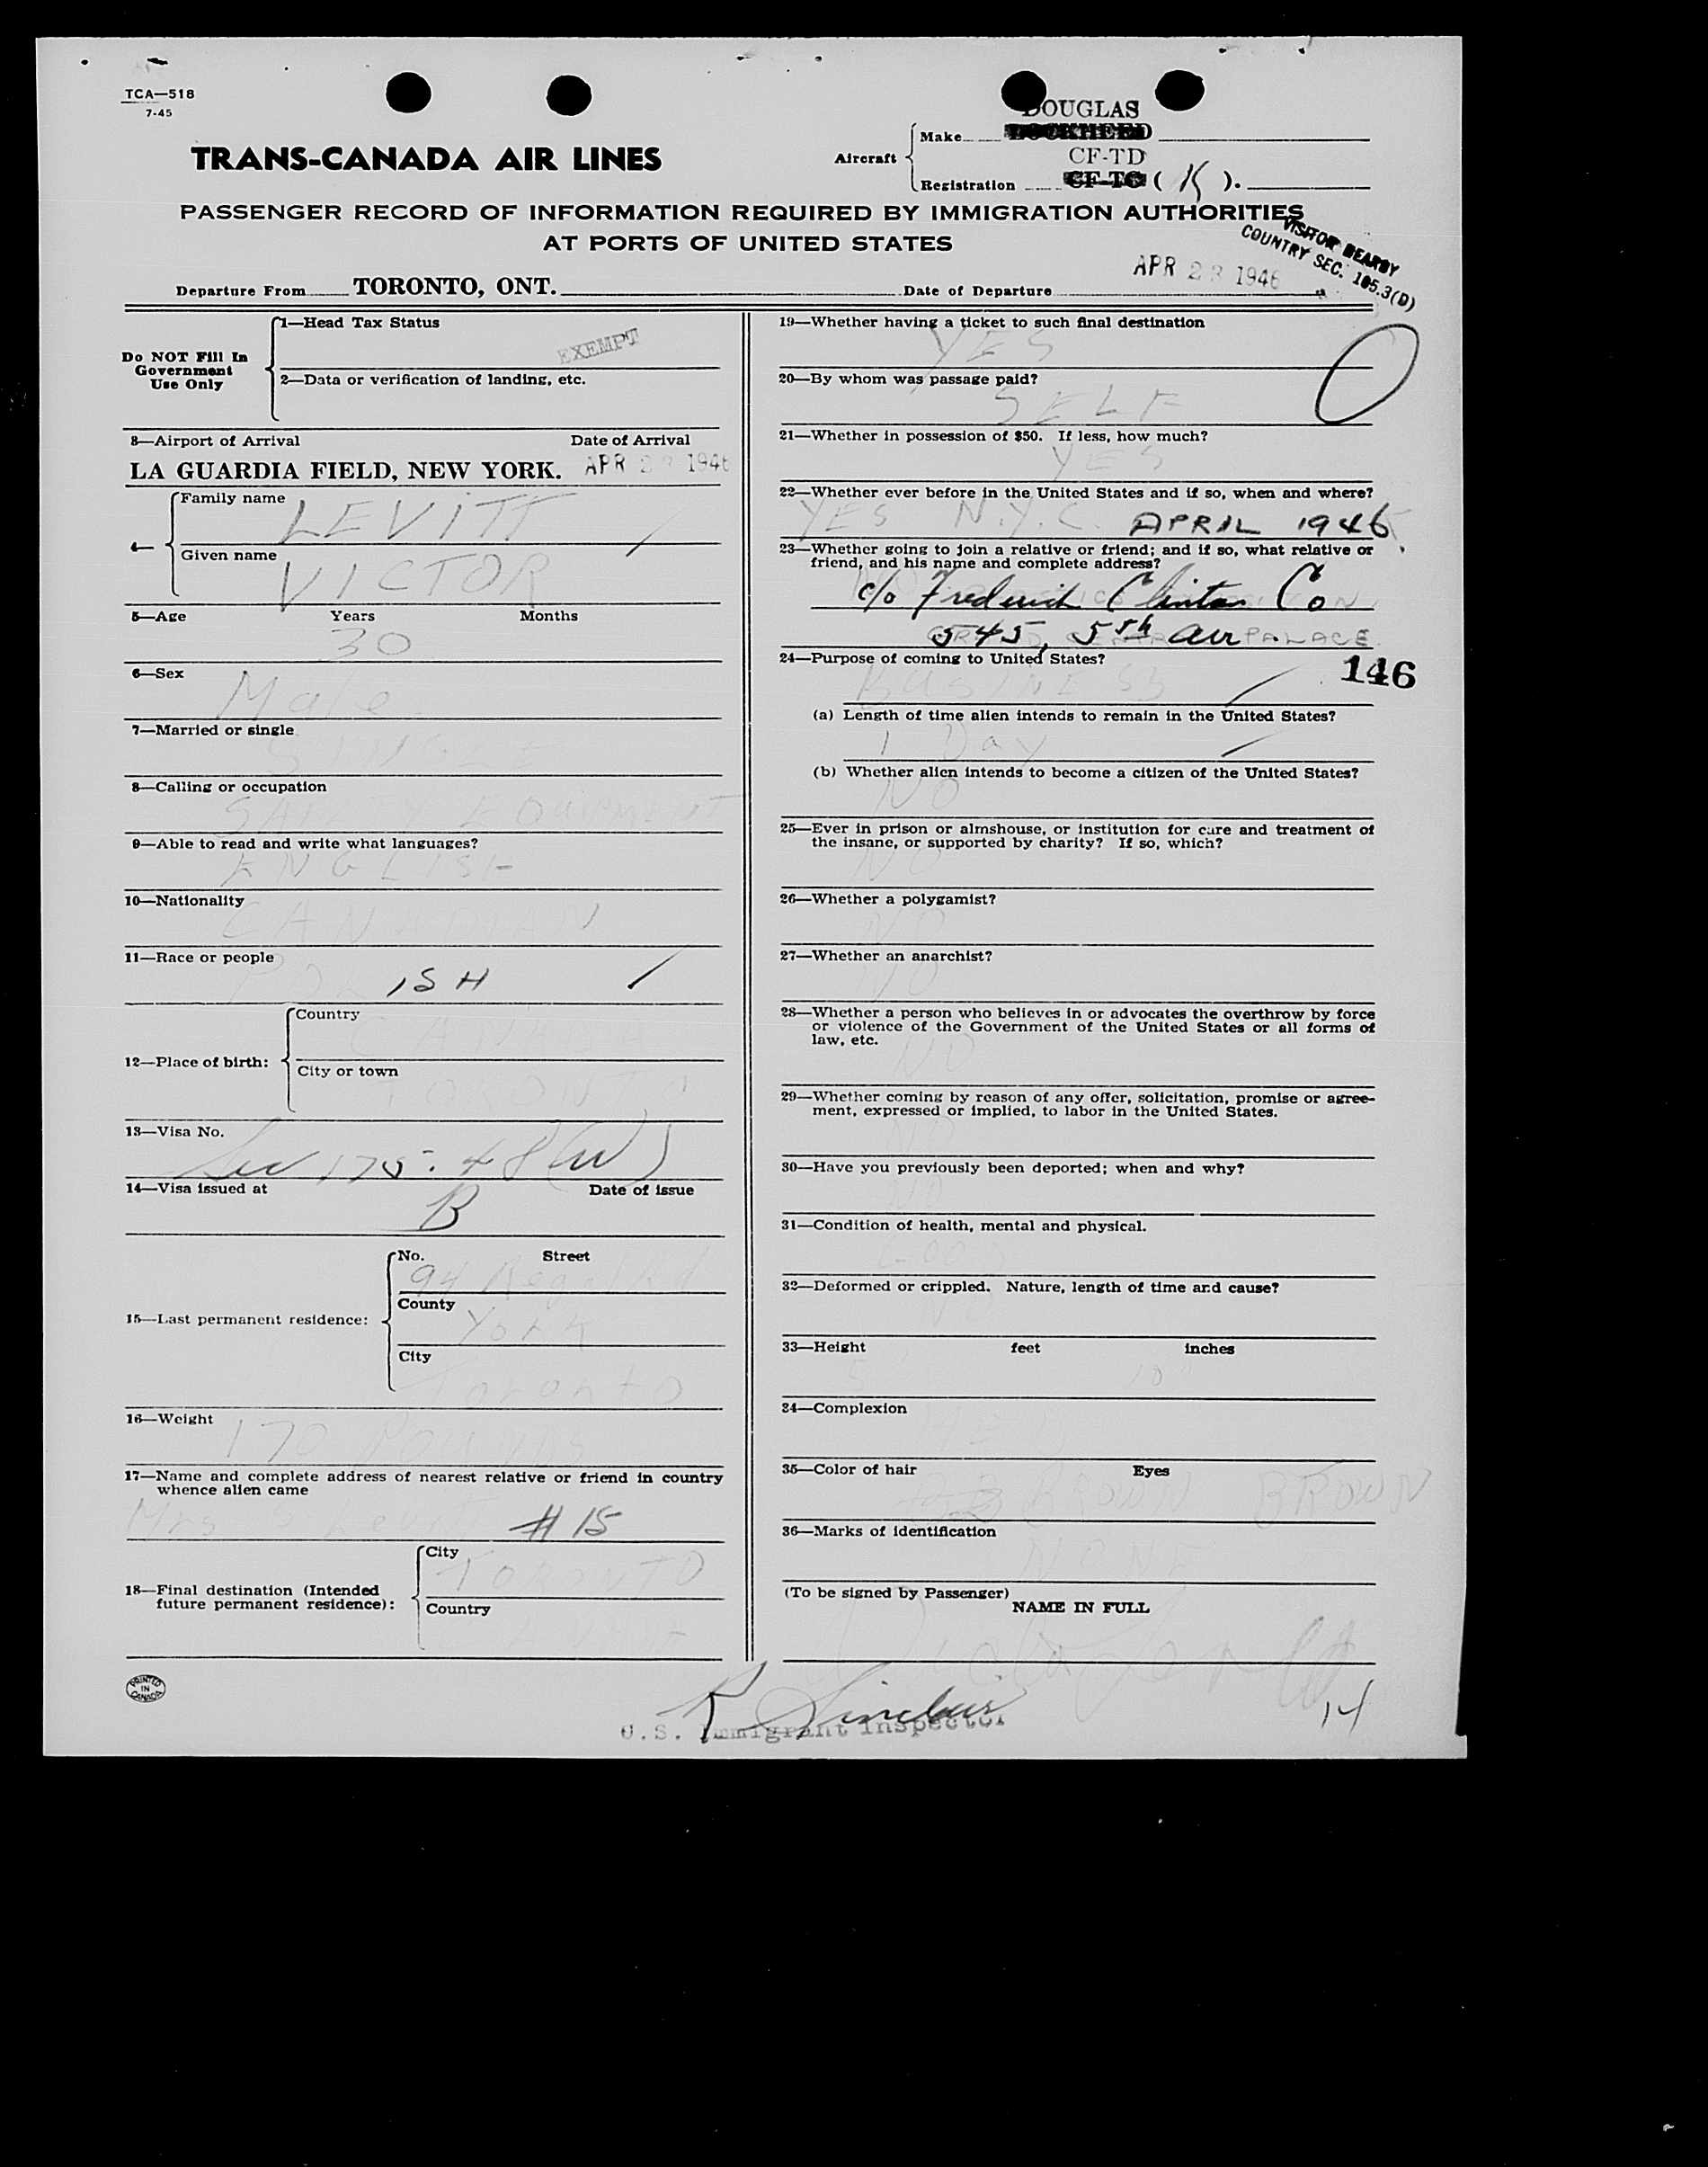 TCA—518
7-45
TRANS-CANADA AIR LINES
Aircraft
Make
DOUGLAS
LOCKHEED
CF-TD
Registration CF-TC ( K ).
PASSENGER RECORD OF INFORMATION REQUIRED BY IMMIGRATION AUTHORITIES
AT PORTS OF UNITED STATES
VISITOR NEARBY
COUNTRY SEC. 105.3(D)
Departure From TORONTO, ONT. Date of Departure APR 1946
Do NOT Fill In
Government
Use Only
1—Head Tax Status
EXEMPT
2—Data or verification of landing, etc.
3—Airport of Arrival Date of Arrival
LA GUARDIA FIELD, NEW YORK. APR 1946
4—
Family name
LEVITT
Given name
VICTOR
5—Age Years Months
30
6—Sex
Male
7—Married or single
SINGLE
8—Calling or occupation
SAFETY EQUIPMENT
9—Able to read and write what languages?
ENGLISH
10—Nationality
CANADIAN
11—Race or people
POLISH
12—Place of birth:
Country
CANADA
City or town
TORONTO
13—Visa No.
Sec 175.48 (W)
14—Visa issued at Date of issue
B
15—Last permanent residence:
No. Street
94 Regal Rd
County
York
City
Toronto
16—Weight
170 Pounds
17—Name and complete address of nearest relative or friend in country
whence alien came
Mrs S Levitt #15
18—Final destination (Intended
future permanent residence):
City
TORONTO
Country
PRINTED
IN
CANADA
19—Whether having a ticket to such final destination
YES
20—By whom was passage paid?
SELF
21—Whether in possession of $50. If less, how much?
YES
22—Whether ever before in the United States and if so, when and where?
YES N.Y.C. APRIL 1946
23—Whether going to join a relative or friend; and if so, what relative or
friend, and his name and complete address?
c/o Frederick Clinton Co
545, 5th Ave. PALACE
24—Purpose of coming to United States?
146
BUSINESS
(a) Length of time alien intends to remain in the United States?
1 Day
(b) Whether alien intends to become a citizen of the United States?
NO
25—Ever in prison or almshouse, or institution for care and treatment of
the insane, or supported by charity? If so, which?
NO
26—Whether a polygamist?
NO
27—Whether an anarchist?
NO
28—Whether a person who believes in or advocates the overthrow by force
or violence of the Government of the United States or all forms of
law, etc.
NO
29—Whether coming by reason of any offer, solicitation, promise or agree-
ment, expressed or implied, to labor in the United States.
NO
30—Have you previously been deported; when and why?
NO
31—Condition of health, mental and physical.
GOOD
32—Deformed or crippled. Nature, length of time and cause?
NO
33—Height feet inches
5 10
34—Complexion
35—Color of hair Eyes
BROWN BROWN
36—Marks of identification
NONE
(To be signed by Passenger)
NAME IN FULL
Victor Levitt
14
R Sinclair
U.S. Immigrant Inspector